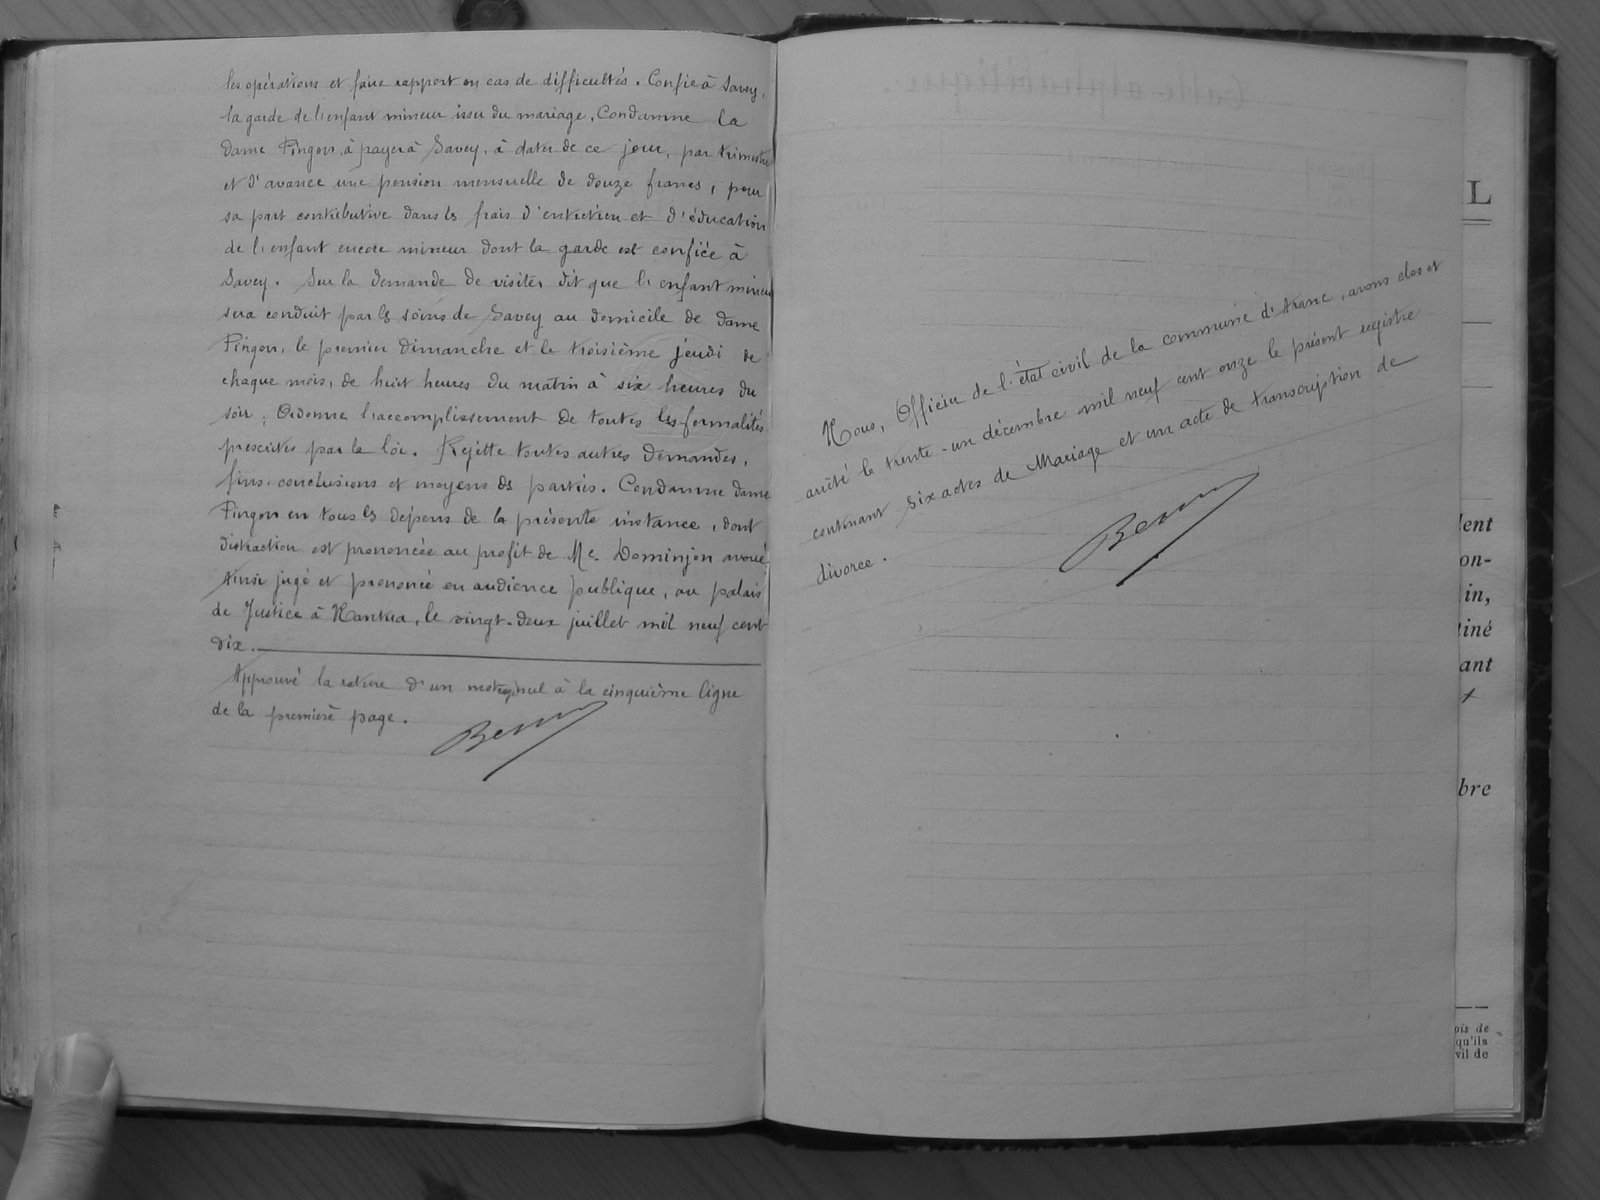 les opérations et faire rapport en cas de difficultés. Confie à Savey,
la garde de l'enfant mineur issu du mariage, Condamne la
dame Pingon, à payer à Savey, à dater de ce jour, par trimestre
et d'avance une pension mensuelle de douze francs, pour
sa part contributive dans les frais d'entretien et d'éducation
de l'enfant encore mineur dont la garde est confiée à
Savey. Sur la demande de visites dit que l'enfant mineur
sera conduit par les soins de Savey au domicile de dame
Pingon, le premier dimanche et le troisième jeudi de
chaque mois, de huit heures du matin à six heures du
soir, Ordonne l'accomplissement de toutes les formalités
prescrites par la loi. Rejette toutes autres demandes,
fins, conclusions et moyens des parties. Condamne dame
Pingon en tous les dépens de la présente instance, dont
distraction est prononcée au profit de Me. Dominjon avoué
Ainsi jugé et prononcé en audience publique, au palais
de Justice à Nantua, le vingt-deux juillet mil neuf cent
dix.
Approuvé la rature d'un mot nul à la cinquième ligne
de la première page.
Nous, Officier de l'état civil de la commune d'Aranc, avons clos et
arrêté le trente-un décembre mil neuf cent onze le présent registre
contenant six actes de Mariage et un acte de transcription de
divorce.
Table alphabétique.
L
dent
on-
in,
tiné
ant
bre
ois de
qu'ils
vil de